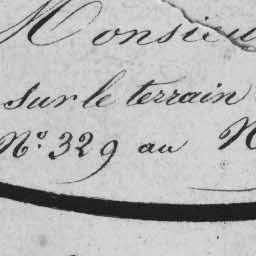 Monsieu
sur le terrain
Nº 329 au N